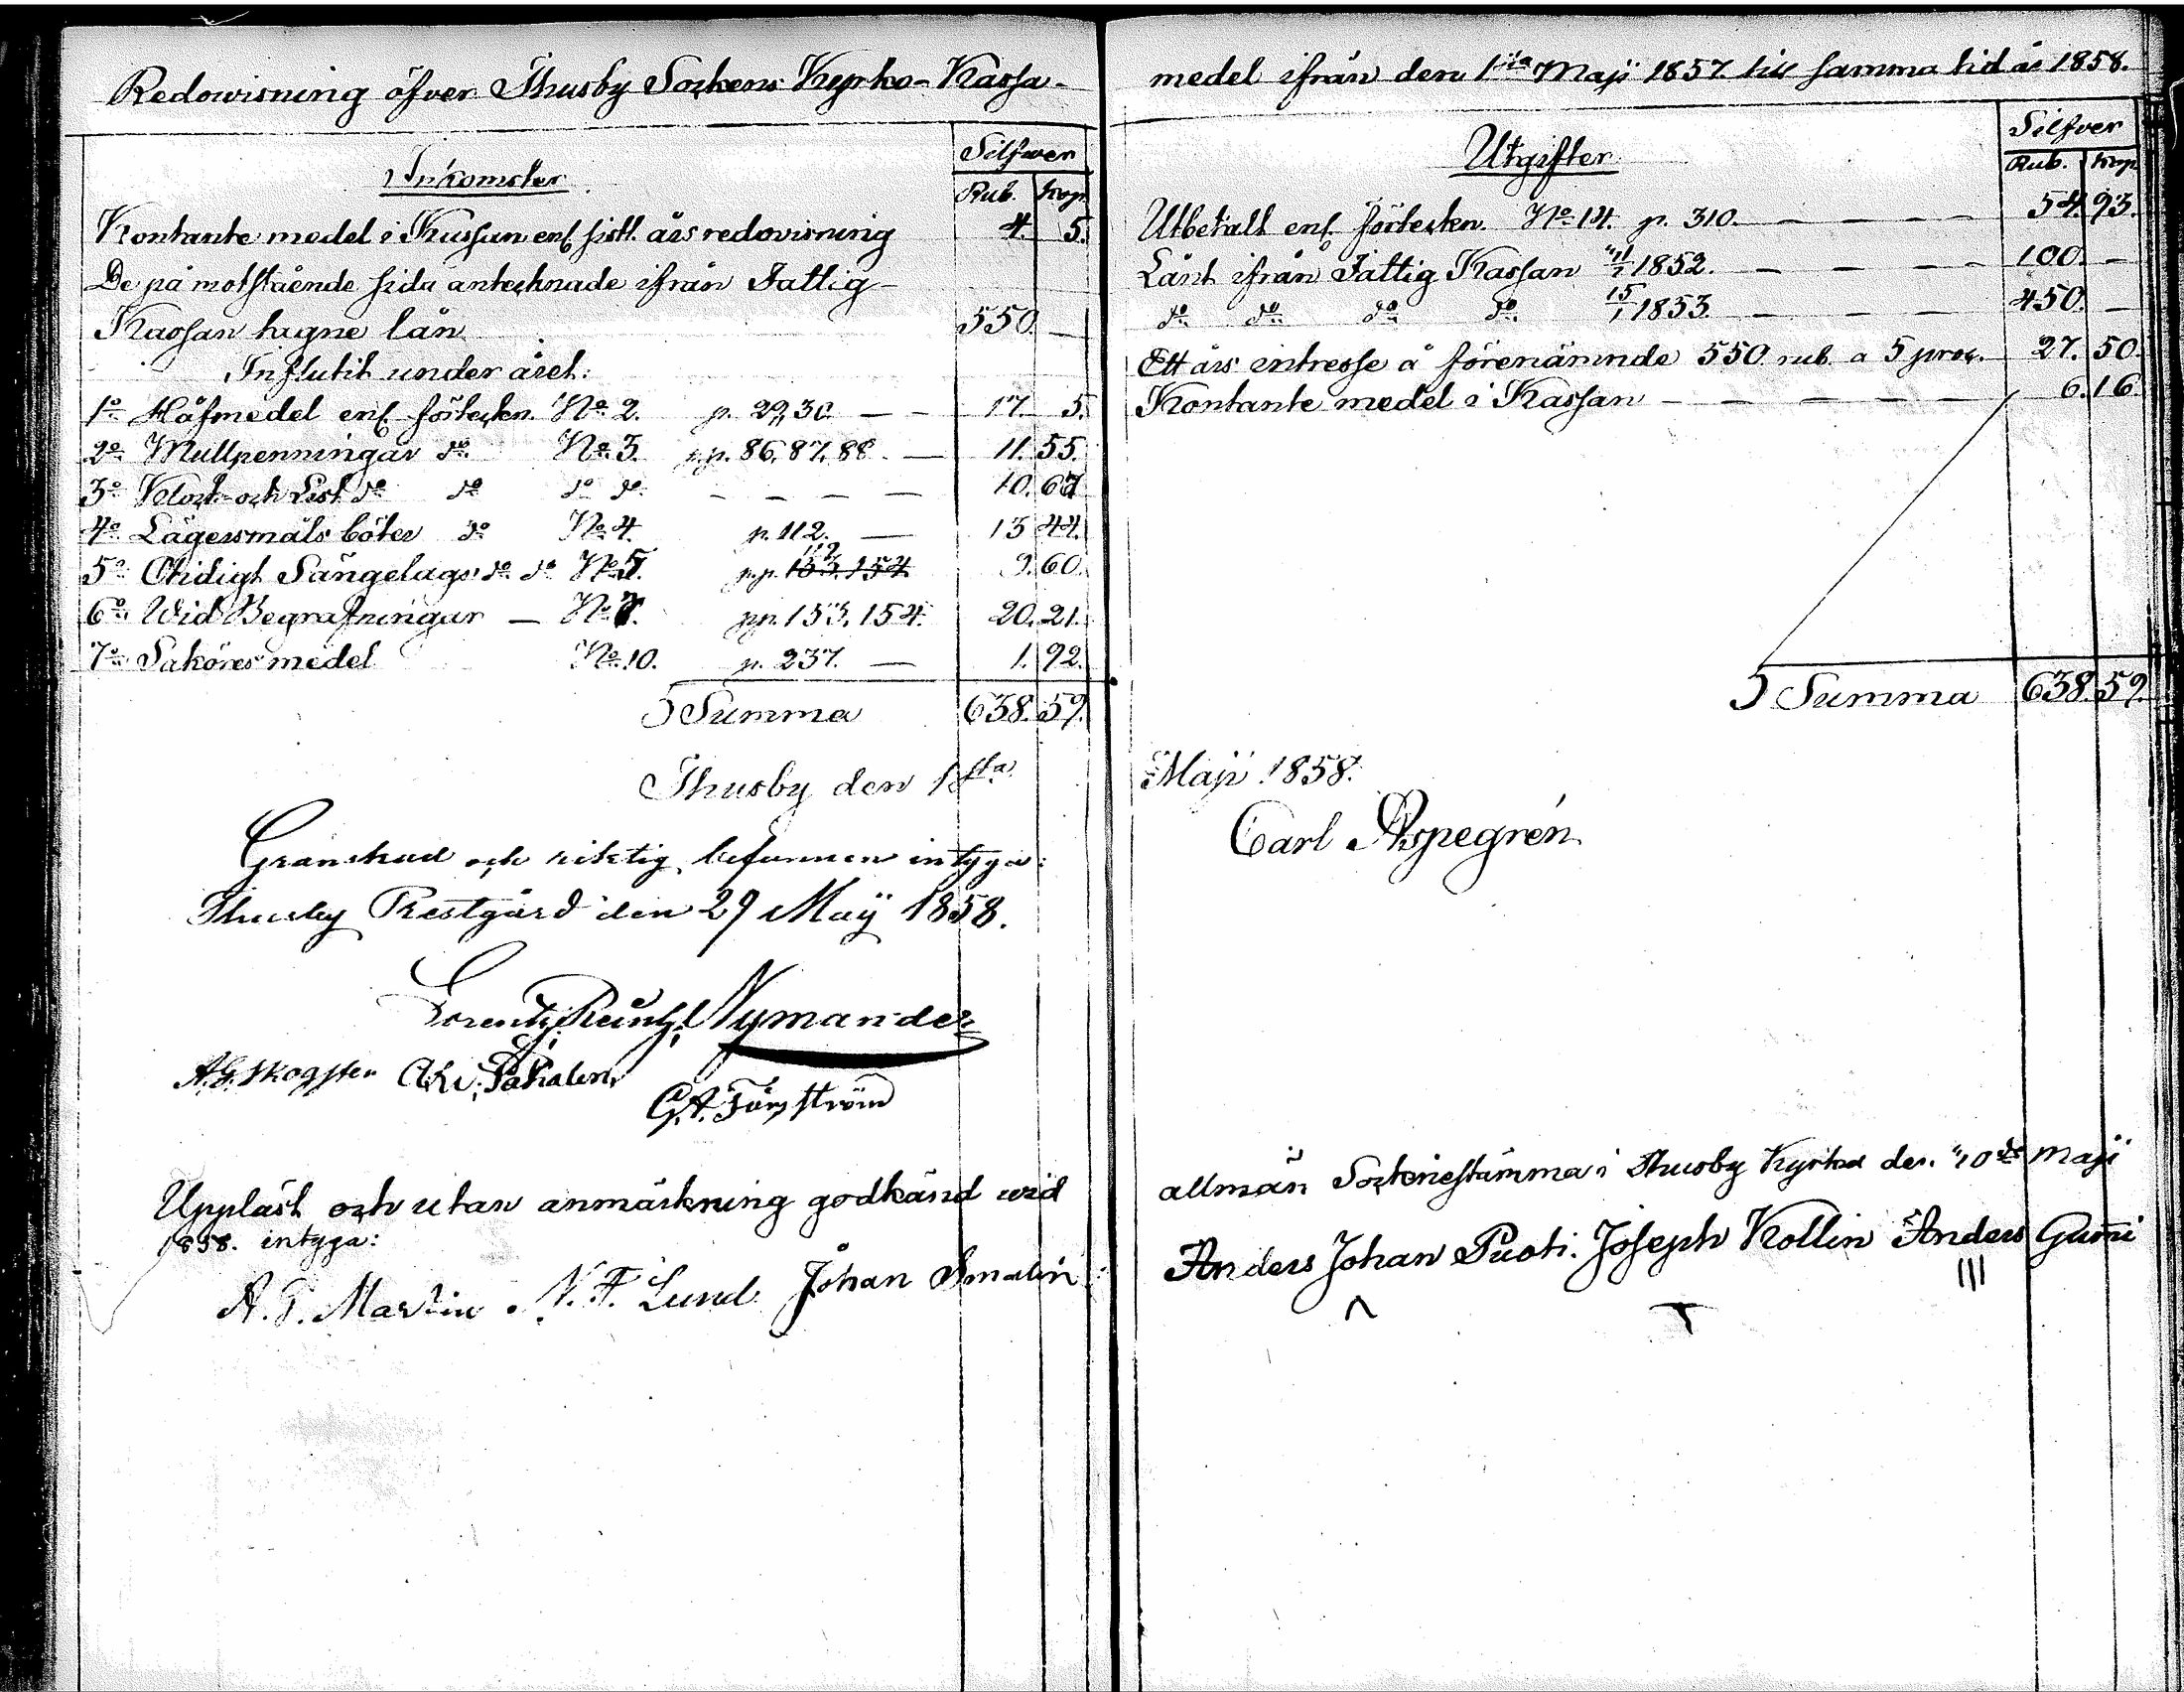 Redowisning öfver Thusby Sockens Kyrko-Kassa-
Silfwer
Inkomster
Rub. Kop.
Kontante medel i Kassan enl. sistl. års redovisning 4. 5.
De på motstående sida antecknade ifrån Fattig-
Kassan tagne lån 550. —
Influtit under året:
1o Håfmedel enl. förteckn. No 2. p. 29, 30 — — 17. 5.
2o Mullpenningar do No 3. p.p. 86, 87, 88. — 11. 55.
3o Klock- och Likst. do do do do — — — — 10. 67
4o Lägersmåls böter do No 4. p. 112. — 13 44.
5o Otidigt Sängelags do do No 5. p.p. 112 153. 154 9. 60.
6o Wid Begrafningar — No 7. pp. 153, 154. 20. 21.
7o Saköres medel No 10. p. 237. — 1. 92.
Summa 638. 59.
Thusby den 1sta
Granskad och riktig befunnen intyga:
Thusby Prestgård den 29 Maji 1858.
Lorentz Reinh. Nymander
A.G. Skogster Pakalen
G.A. Forsström
Uppläst och utan anmärkning godkänd wid
1858. intyga:
A. G. Martin. N. F. Lund. Johan Smalén
medel ifrån den 1sta Maji 1857 till samma tid år 1858.
Silfver
Utgifter
Rub. Kop.
Utbetalt enl. förteckn. No 14. p. 310. — — — — 54. 93.
Lånt ifrån Fattig Kassan 1852. — — — — 100. —
do do do do 15/1 1853. — — — — 450. —
Ett års intresse å förenämnde 550 rub. a 5 proc. 27. 50
Kontante medel i Kassan — — — — — 6. 16.
Summa 638. 59.
Maji 1858.
Carl Aspegrén
allmän Sockenestämma i Thusby Kyrka den Maji
Anders Johan Puoti. Joseph Kollin Anders Gumi